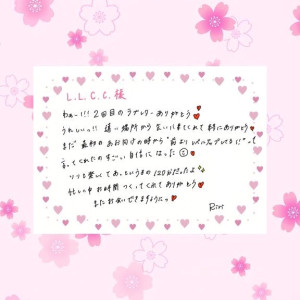 L.L.C.C.様
わぁー!!!2回目のラブレターありがとう
うれしいっ!!遠い場所から会いに来てくれて本当にありがとう
まだ最初のあお向けの時から"前より
言ってくれたのすごい自信になった
リリを愛して
忙しい中お時間つくってくれてありがとう
またお会いできますようにっ
Riri